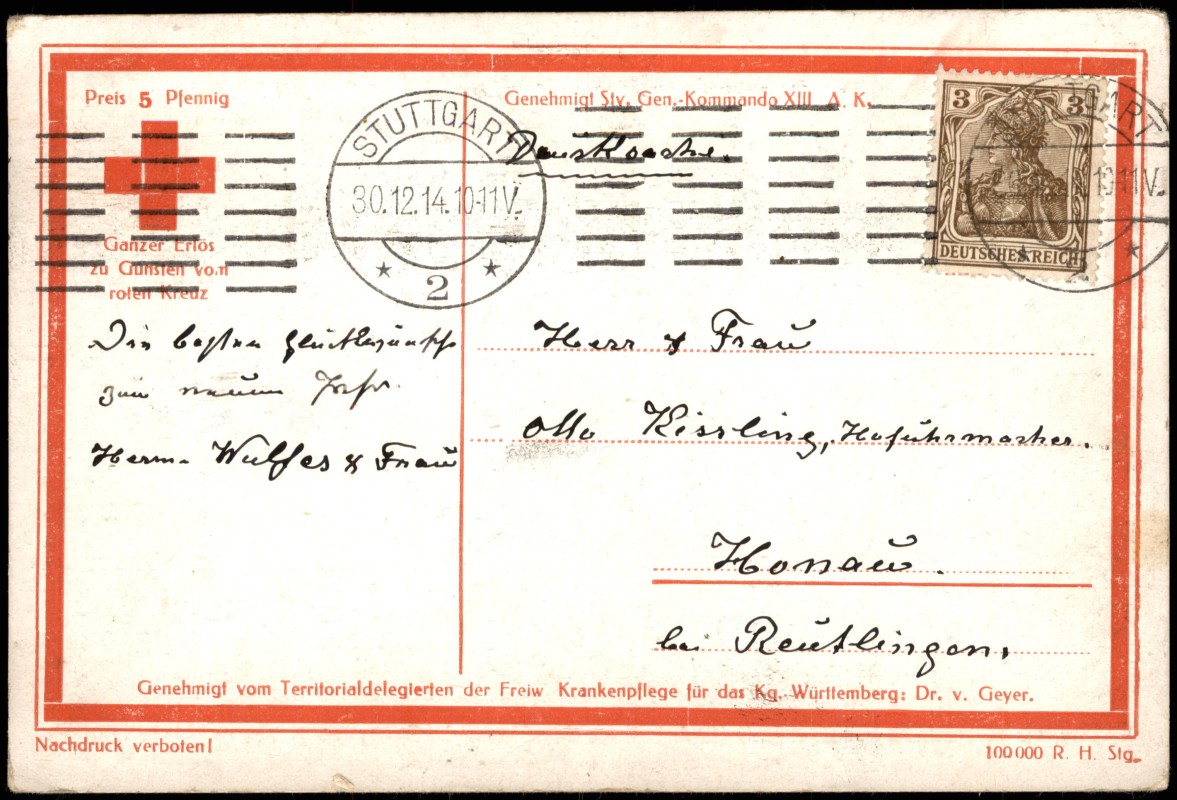 Preis 5 Pfennig
Genehmigt Stv. Gen.-Kommando XIII A. K.
Ganzer Erlös
zu Gunsten vom
roten Kreuz
STUTTGART
30.12.14. 10-11V.
2
Drucksache.
3 3
DEUTSCHES REICH
10-11V.
Die besten Glückwünsche
zum neuen Jahr.
Herm. Wulfes & Frau
Herr & Frau
Otto Kissling, Hofuhrmacher.
Honau.
bei Reutlingen.
Genehmigt vom Territorialdelegierten der Freiw Krankenpflege für das Kg. Württemberg: Dr. v. Geyer.
Nachdruck verboten!
100000 R. H. Stg.